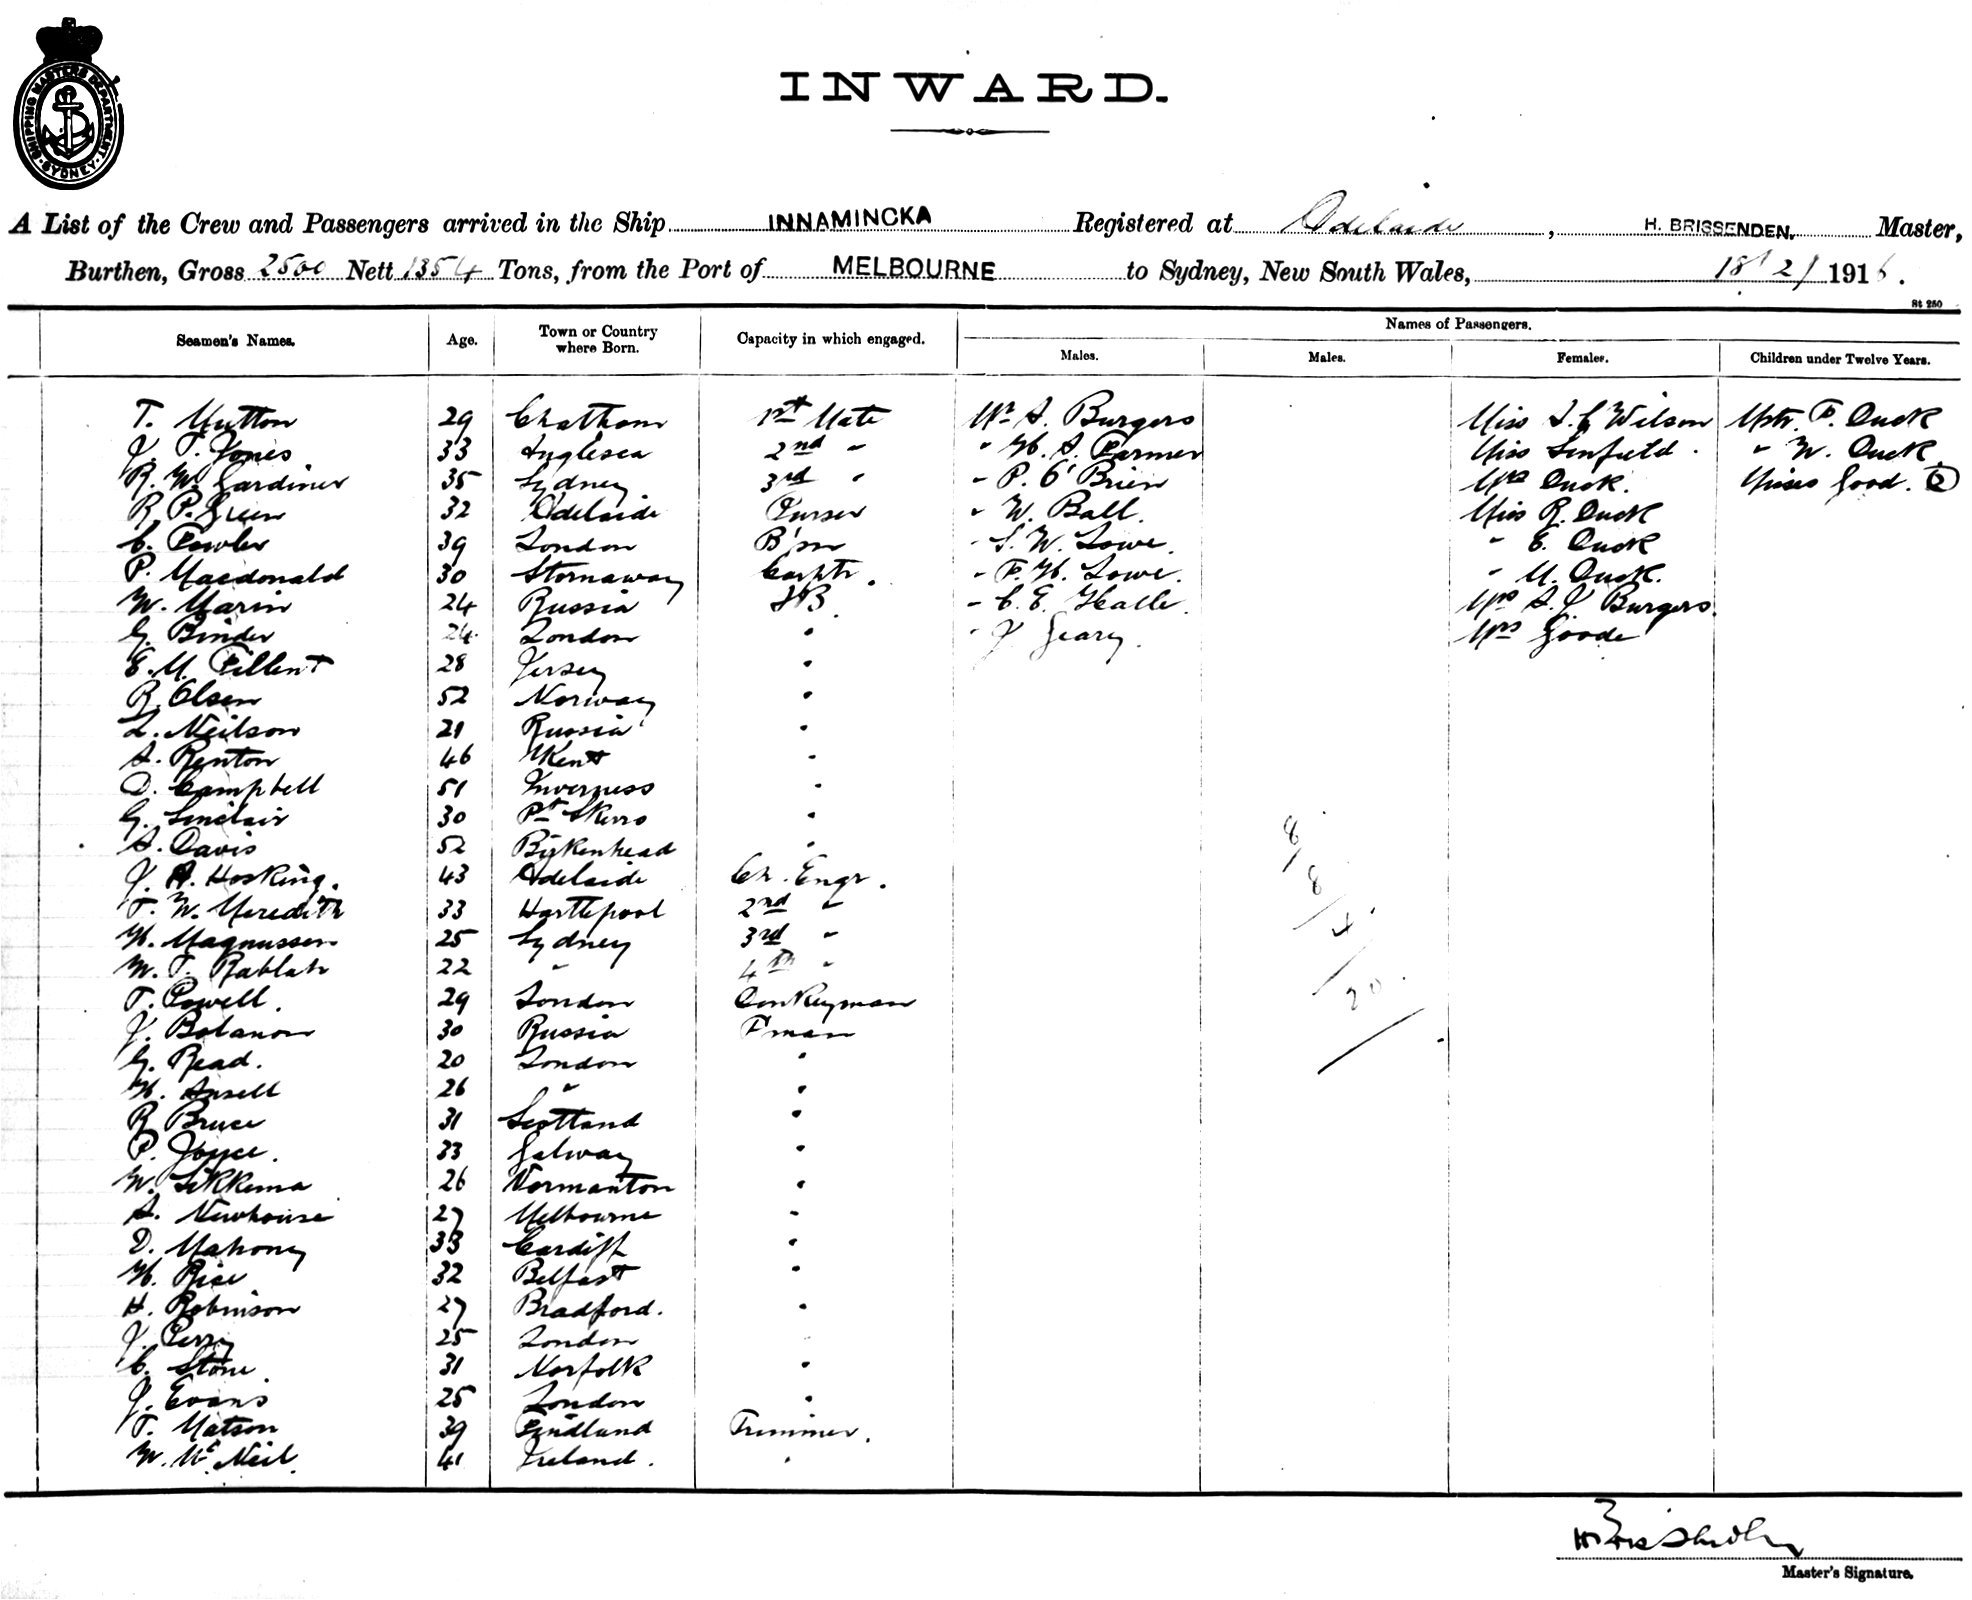 SHIPPING MASTERS DEPARTMENT. SYDNEY
INWARD.
A List of the Crew and Passengers arrived in the Ship INNAMINCKA Registered at Adelaide, H. BRISSENDEN. Master,
Burthen, Gross 2500 Nett 1354 Tons, from the Port of MELBOURNE to Sydney, New South Wales, 18/2/1916.
St 250
Seamen's Names. Age. Town or Country where Born. Capacity in which engaged. Names of Passengers.
Males. Males. Females. Children under Twelve Years.
T. Mutton 29 Chatham 1st Mate Mr A. Burgers Miss A. C Wilson Mstr. F. Duck
J. T. Jones 33 Anglesea 2nd " " H. A. Farmer Miss Linfield. " W. Duck
R. W. Gardiner 35 Sydney 3rd " " P. O'Brien Mrs Duck. Misses Good. 2
R. P. Green 32 Adelaide Purser " W. Ball. Miss R. Duck
C. Fowler 39 London B'sn " S. W. Lowe. " E. Duck
P. Macdonald 30 Stornaway Carptr. " F. H. Lowe. " M. Duck.
W. Marin 24 Russia AB " C. E. Halle. Mrs A. J Burgers.
G. Binder 24 London " " J Geary. Mrs Goode
E. M. Fillent 28 Jersey "
R. Olsen 52 Norway "
L. Neilson 21 Russia "
A. Renton 46 Kent "
D. Campbell 51 Inverness "
G. Sinclair 30 Pt Skerro "
A. Davis 52 Birkenhead "
J. A. Hosking. 43 Adelaide Ch. Engr.
T. W. Meredith 33 Hartlepool 2nd "
H. Magnussen 25 Sydney 3rd "
W. T. Rablah 22 " 4th "
T. Powell. 29 London Donkeyman
J. Bolanon 30 Russia F'man
G. Read. 20 London "
H. Ansell 26 " "
R Bruce 31 Scotland "
P. Joyce. 33 Galway "
W. Sikkema 26 Normanton "
A. Newhouse 27 Melbourne "
D. Mahony 33 Cardiff "
H. Rice 32 Belfast "
H. Robinson 27 Bradford. "
J. Perry 25 London "
C. Stone 31 Norfolk "
J. Evans 25 London "
T. Matson 39 Findland Trimmer.
W. McNeil. 41 Ireland. "
8/8/4/20/
H Brissenden
Master's Signature.